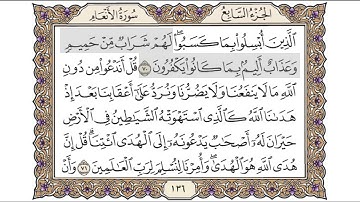 الجزء السابع
سورة الأنعام
الَّذِينَ أُبْسِلُوا بِمَا كَسَبُوا لَهُمْ شَرَابٌ مِّنْ حَمِيمٍ
وَعَذَابٌ أَلِيمٌ بِمَا كَانُوا يَكْفُرُونَ ٧٠ قُلْ أَنَدْعُوا مِن دُونِ
اللَّهِ مَا لَا يَنفَعُنَا وَلَا يَضُرُّنَا وَنُرَدُّ عَلَىٰ أَعْقَابِنَا بَعْدَ إِذْ
هَدَىٰنَا اللَّهُ كَالَّذِي اسْتَهْوَتْهُ الشَّيَاطِينُ فِي الْأَرْضِ
حَيْرَانَ لَهُ أَصْحَٰبٌ يَدْعُونَهُ إِلَى الْهُدَى ائْتِنَا ۗ قُلْ إِنَّ
هُدَى اللَّهِ هُوَ الْهُدَىٰ ۖ وَأُمِرْنَا لِنُسْلِمَ لِرَبِّ الْعَٰلَمِينَ ٧١ وَأَنْ
١٣٦